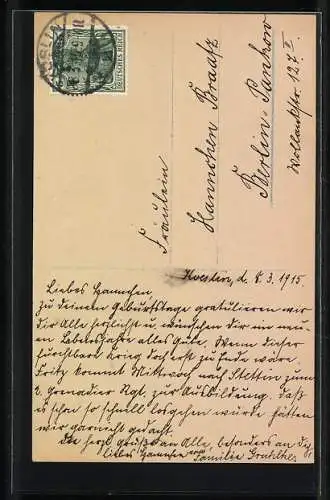 DEUTSCHES REICH
Fräulein
Hannchen Braatz
Berlin-Pankow
Wollankstr. 127 I
d. 8.3.1915
Liebes Hannchen,
zu deinem Geburtstage gratulieren wir
dir Alle herzlichst u. wünschen dir im neu-
en Lebensjahre alles Gute. Wenn dieser
furchtbare Krieg doch erst zu Ende wäre.
Fritz kommt Mittwoch nach Stettin zum
2. Grenadier Rgt. zur Ausbildung. Daß
es schon so schnell losgehen würde hätten
wir garnicht gedacht.
herzl. Grüße an Alle, besonders an dich
liebes Hannchen von Familie